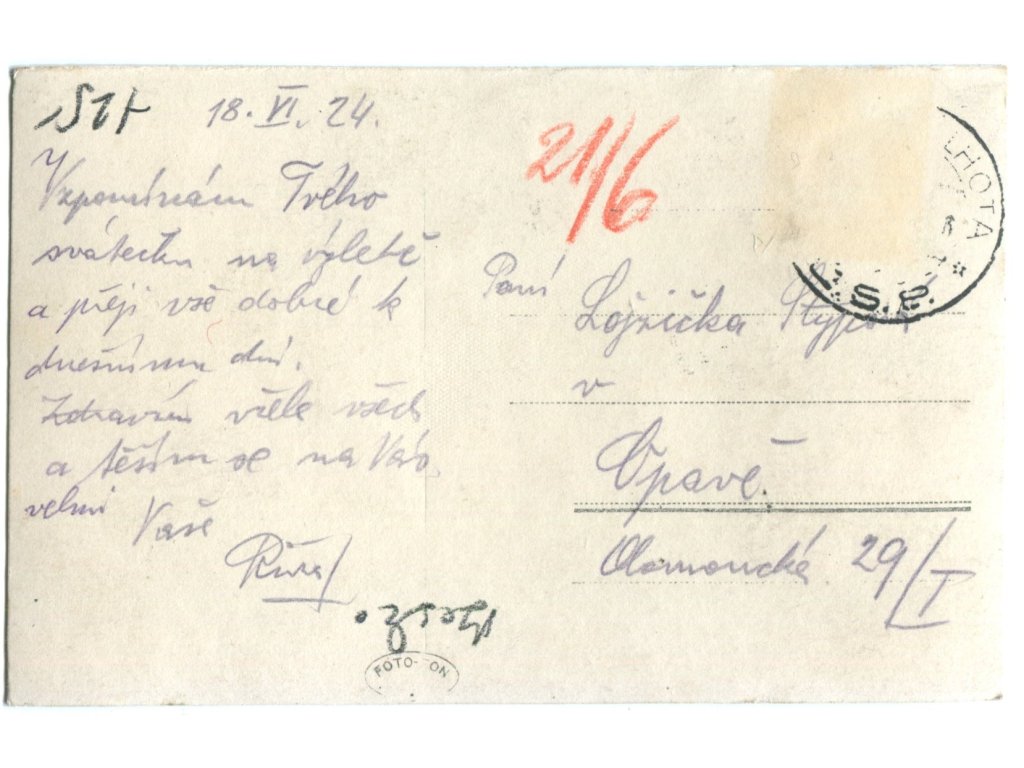 18. VI. 24.
Vzpomínám Tvého
svátečku na výletě
a přeji vše dobré k
dnešnímu dni.
Zdravím vřele všech
a těším se na Vás
velmi
Vaše
Růža
21/6
LHOTA
Č. S. P.
Paní
Lojzička
v
Opavě.
Olomoucká 29/I
FOTO- ON